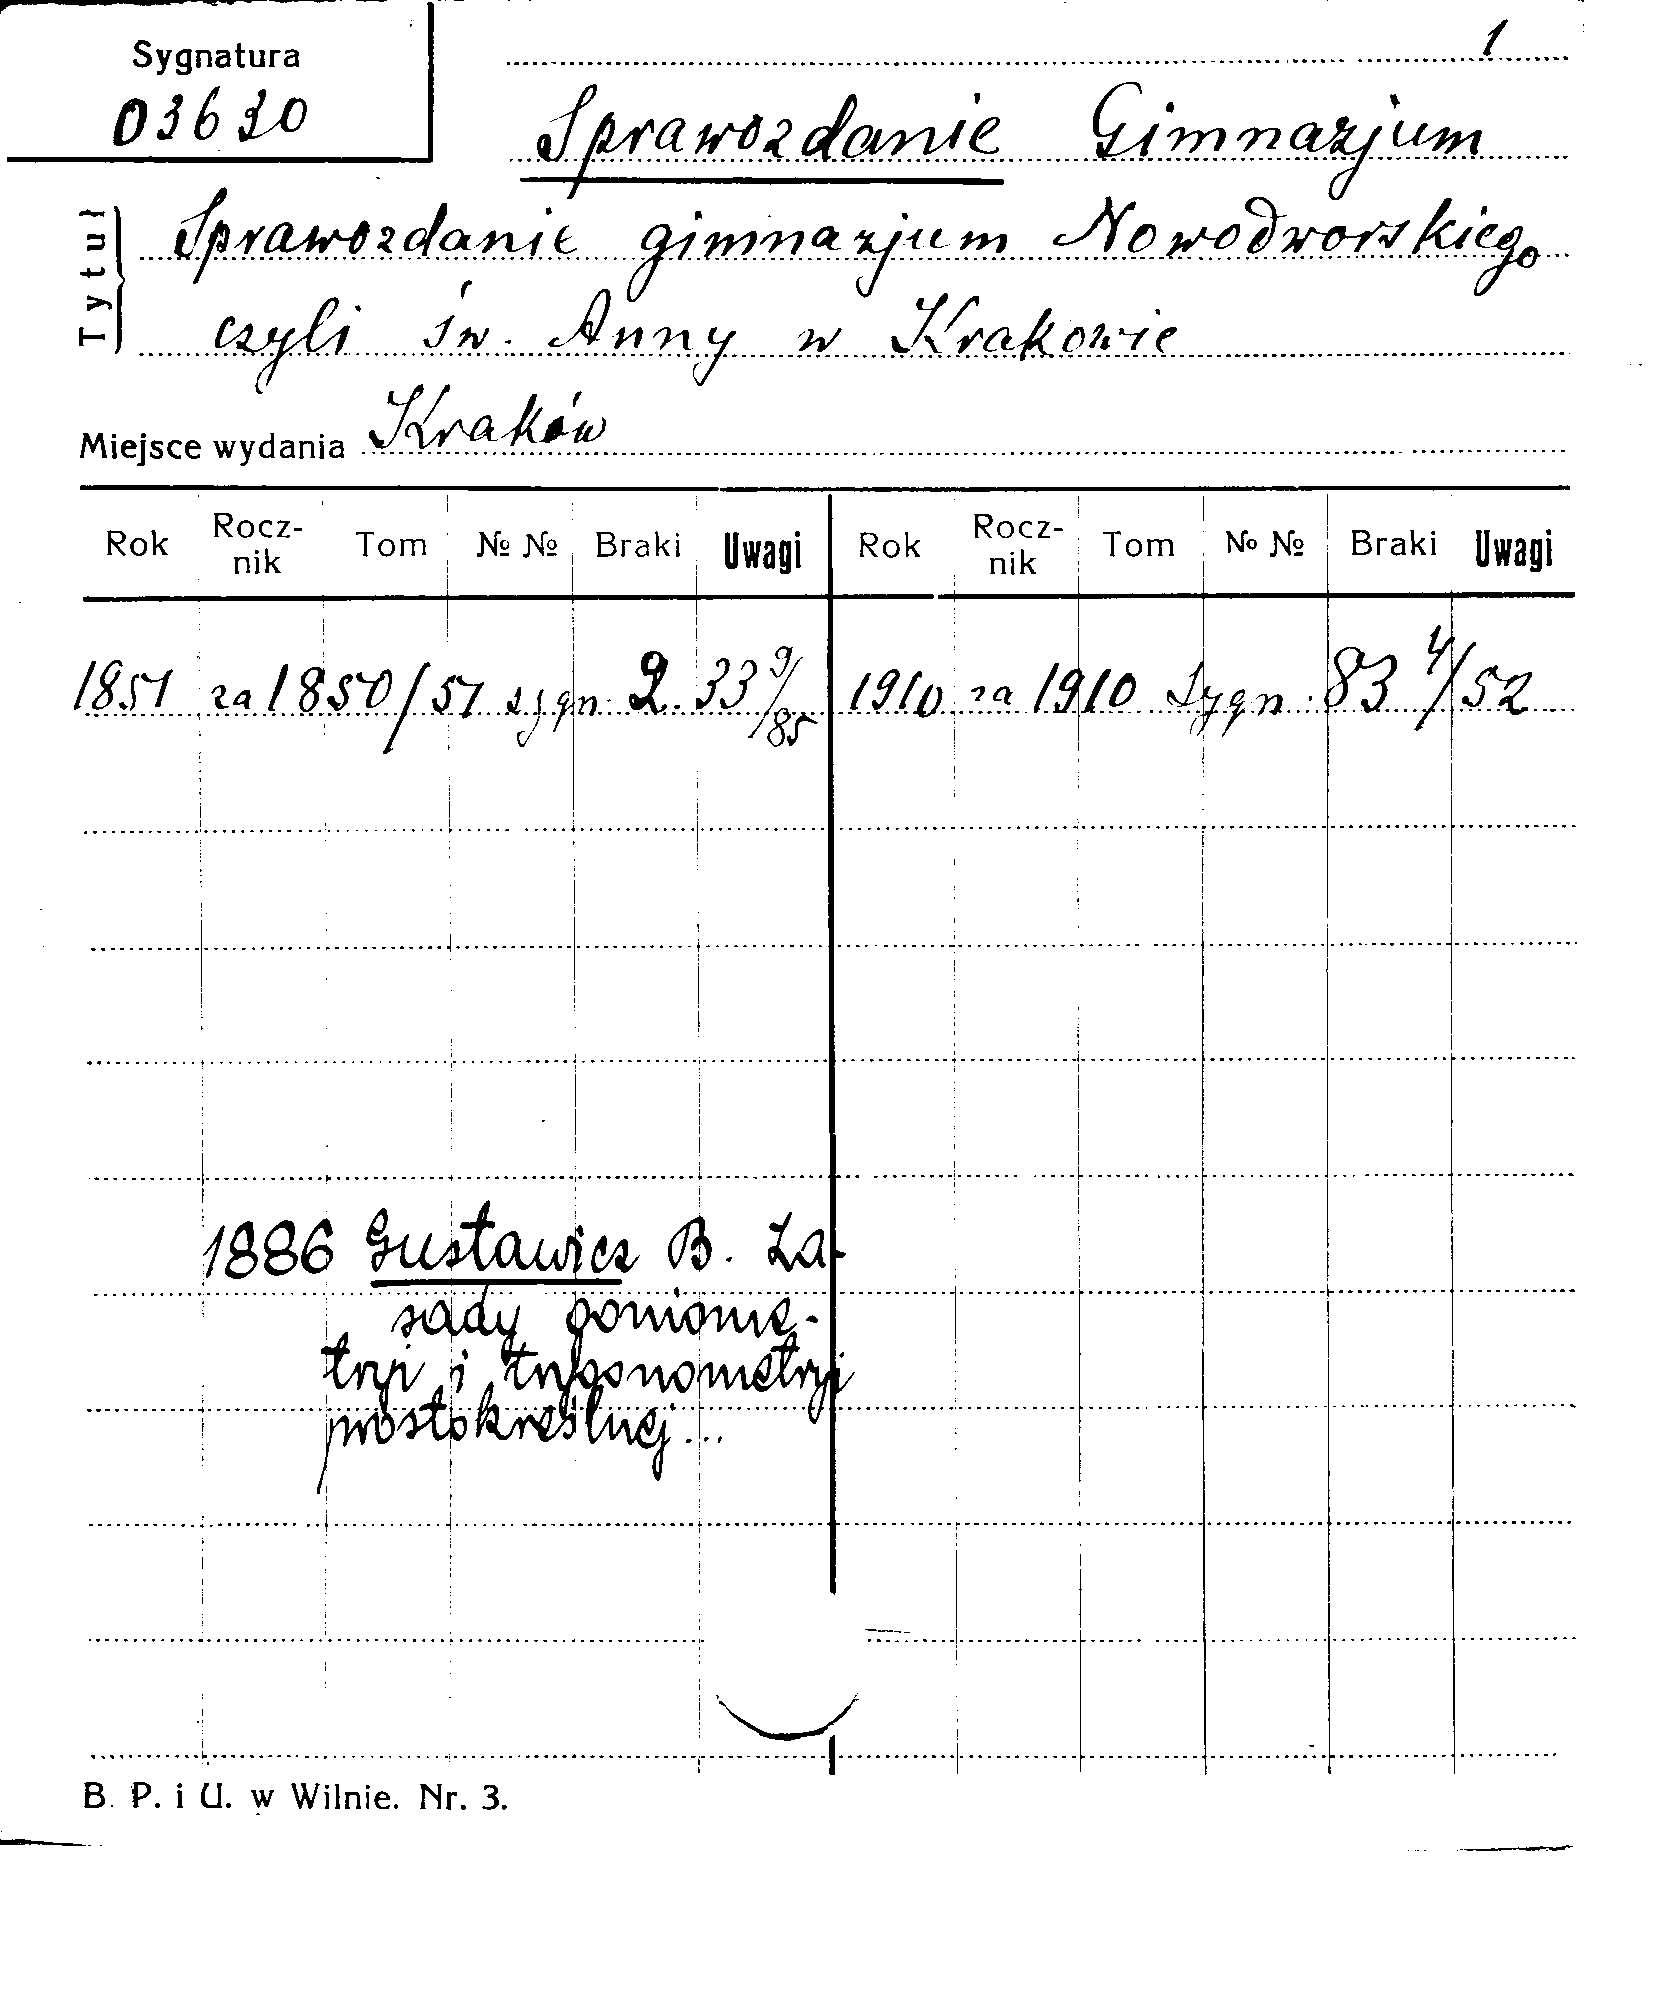 1
Sygnatura
03630
Sprawozdanie Gimnazjum
Tytuł
Sprawozdanie gimnazjum Nowodworskiego
czyli św. Anny w Krakowie
Miejsce wydania Kraków
Rok Rocz-nik Tom № № Braki Uwagi Rok Rocz-nik Tom № № Braki Uwagi
1851 za 1850/51 sygn. 2.33 9/85 1910 za 1910 Sygn. 83 4/52
1886 Gustawicz B. Za-
sady goniome-
tryi i trygonometryi
prostokreślnej...
B. P. i U. w Wilnie. Nr. 3.